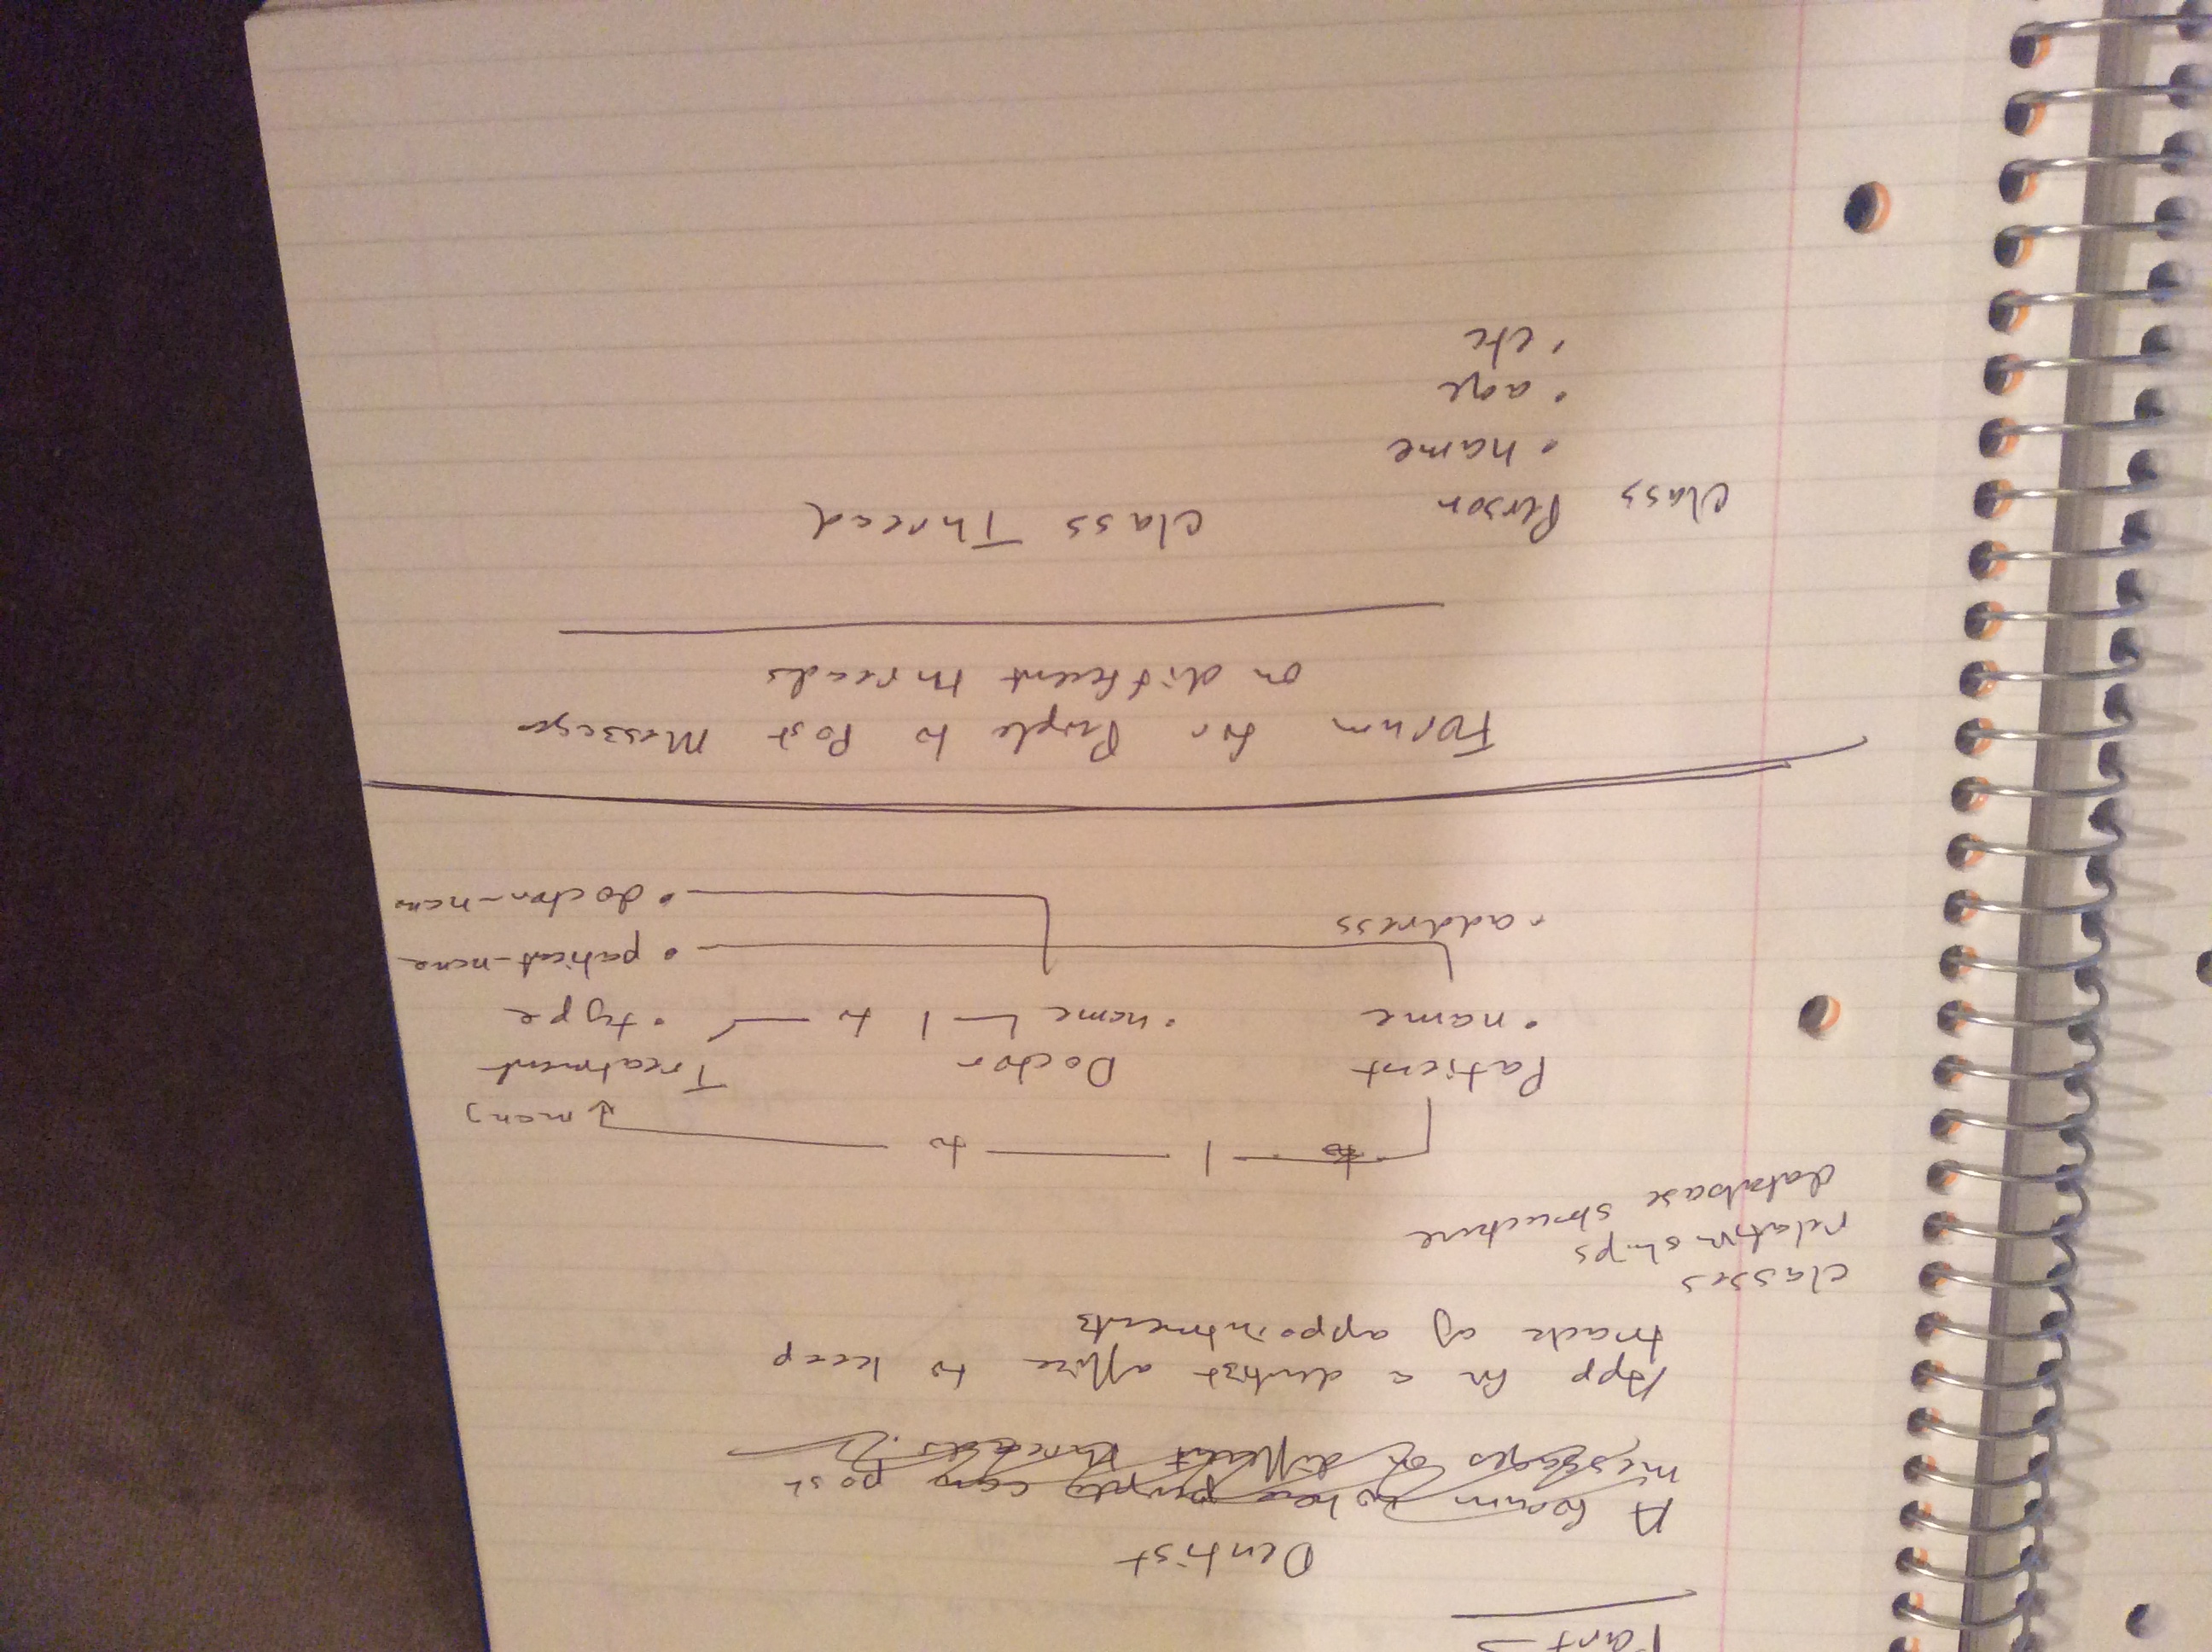 Dentist
A forum where people can post
messages on different threads.
App for a dentist office to keep
track of appointments
classes
relationships
database structure
to 1 to many
Patient Doctor Treatment
• name • name 1 to • type
• patient-name
• address
• doctor-name
Forum for People to Post Messages
on different threads
class Person class Thread
• name
• age
• etc